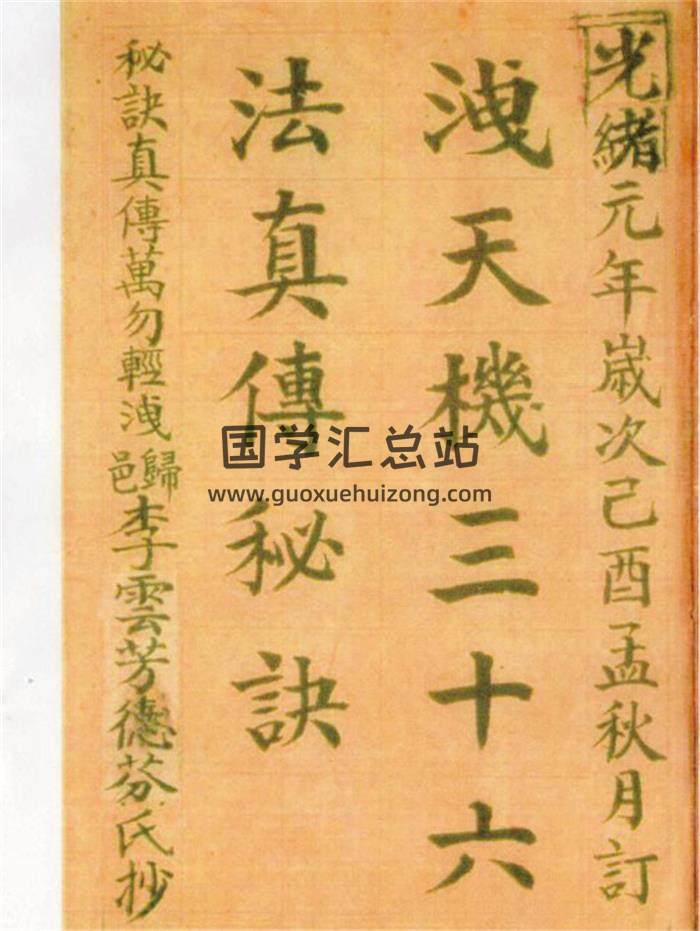 光緒元年歲次己酉孟秋月訂
洩天機三十六
法真傳秘訣
秘訣真傳萬勿輕洩
歸邑李雲芳德芬氏抄
国学汇总站
www.guoxuehuizong.com